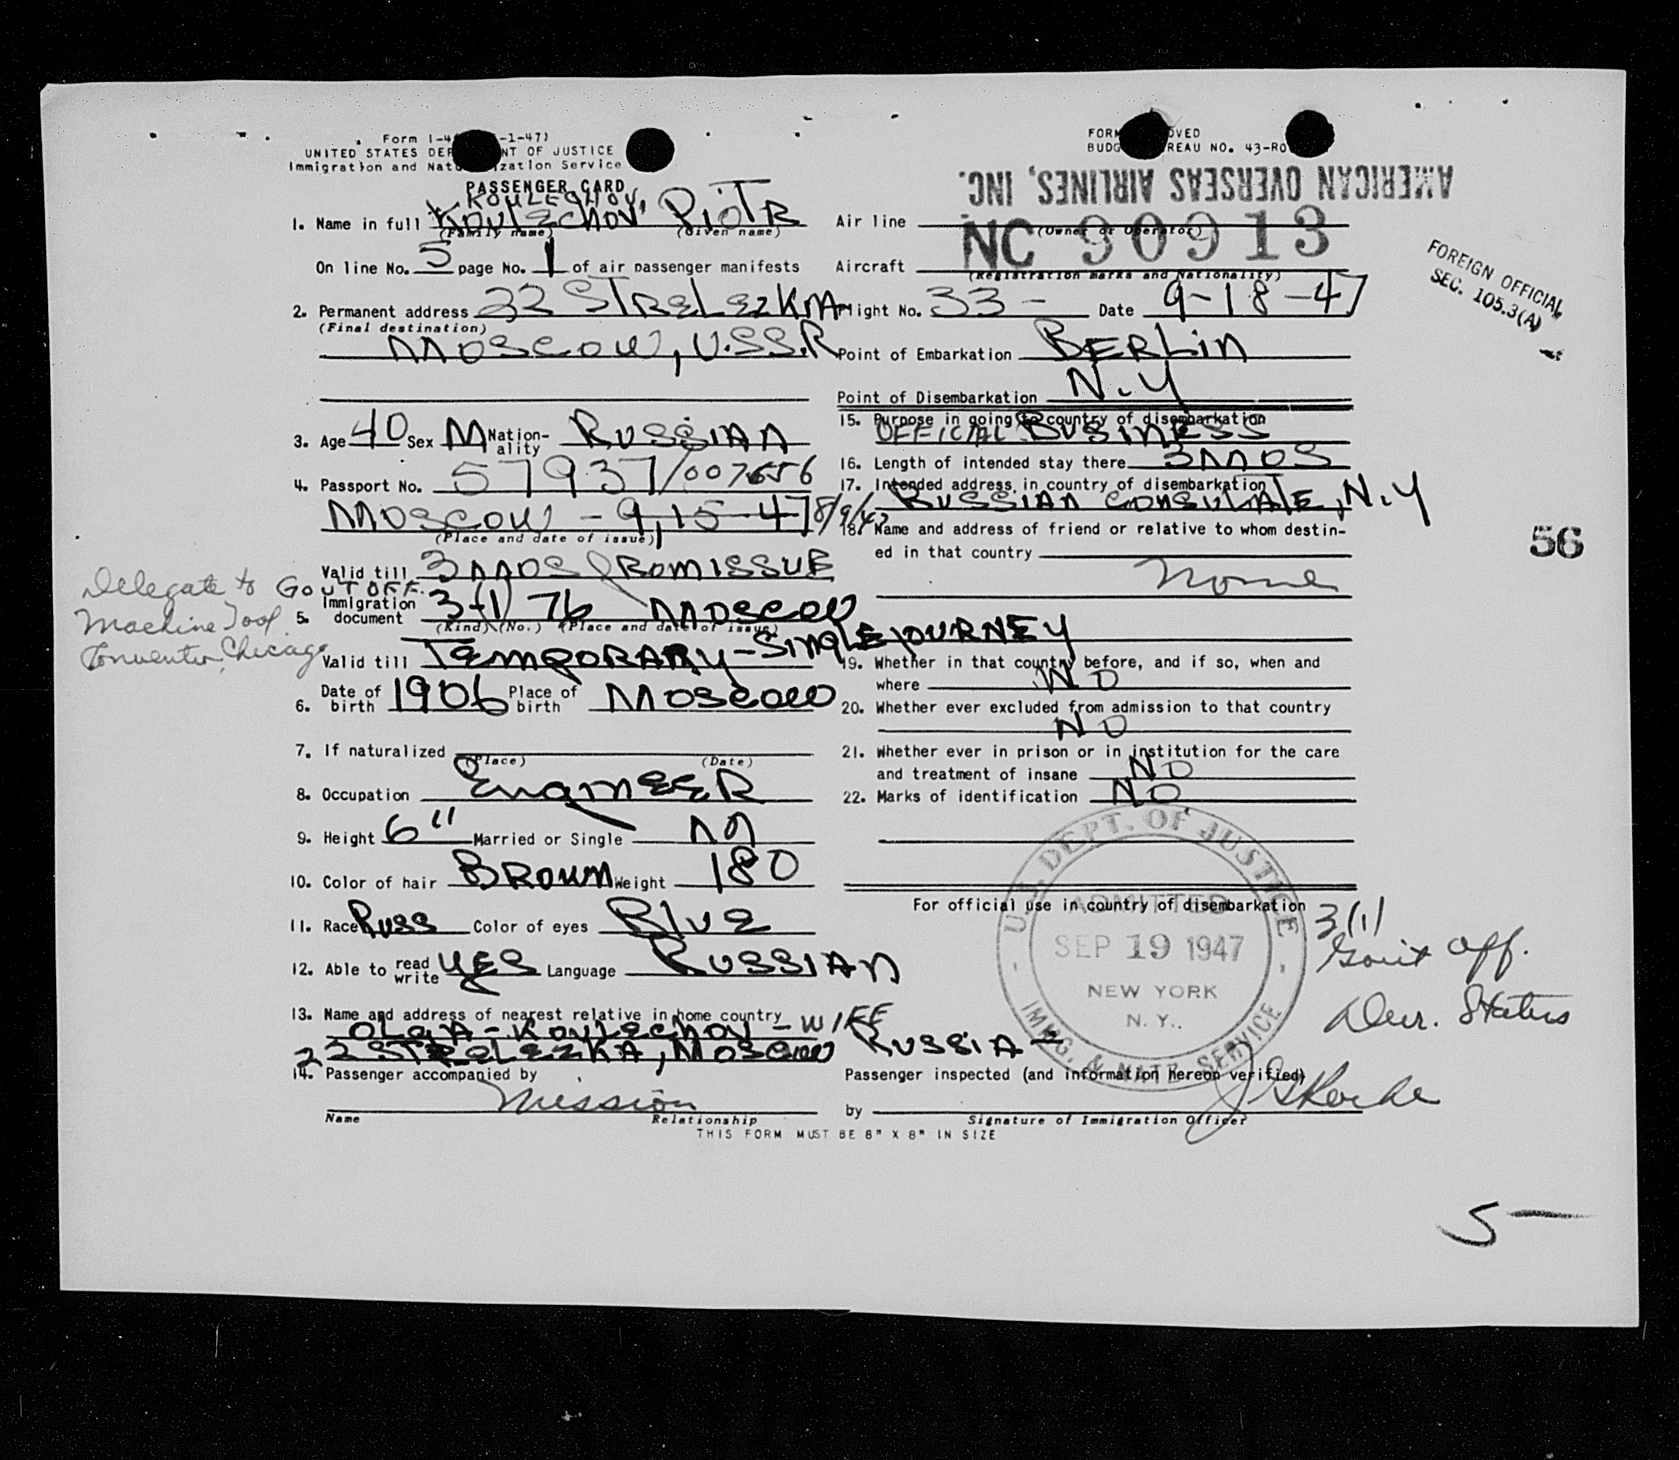 Form I-4 -1-47)
UNITED STATES DEP NT OF JUSTICE
Immigration and Nat zation Service
PASSENGER CARD
KOULECHOV,
1. Name in full KOULECHOV, PIOTR
(Family name) (Given name)
On line No. 5 page No. 1 of air passenger manifests
2. Permanent address 22 STRELEZKA
(Final destination)
MOSCOW, U.S.S.R
3. Age 40 Sex M Nation-ality RUSSIAN
4. Passport No. 57937/007656
MOSCOW - 9,15-47 8/9/47
(Place and date of issue)
Valid till 3 MOS FROM ISSUE
Delegate to GOUT OFF.
Machine Tool
Convention, Chicago
5. Immigration document 3-(1) 76 MOSCOW
(Kind) (No.) (Place and date of issue)
Valid till TEMPORARY - SINGLE JOURNEY
6. Date of birth 1906 Place of birth MOSCOW
7. If naturalized
(Place) (Date)
8. Occupation ENGINEER
9. Height 6" Married or Single M
10. Color of hair BROWN Weight 180
11. Race RUSS Color of eyes BLUE
12. Able to read write YES Language RUSSIAN
13. Name and address of nearest relative in home country
OLGA - KOULECHOV - WIFE
22 STRELEZKA, MOSCOW RUSSIA
14. Passenger accompanied by
Mission
Name Relationship
FORM OVED
BUDG REAU NO. 43-RO
AMERICAN OVERSEAS AIRLINES, INC.
Air line
(Owner or Operator)
NC 90913
Aircraft
(Registration marks and Nationality)
FOREIGN OFFICIAL
SEC. 105.3(A)
Flight No. 33 - Date 9-18-47
Point of Embarkation BERLIN
Point of Disembarkation N.Y
15. Purpose in going to country of disembarkation
OFFICIAL BUSINESS
16. Length of intended stay there 3 MOS
17. Intended address in country of disembarkation
RUSSIAN CONSULATE, N.Y
18. Name and address of friend or relative to whom destin-
ed in that country
None
56
19. Whether in that country before, and if so, when and
where NO
20. Whether ever excluded from admission to that country
NO
21. Whether ever in prison or in institution for the care
and treatment of insane NO
22. Marks of identification NO
For official use in country of disembarkation
U.S. DEPT. OF JUSTICE
ADMITTED
SEP 19 1947
NEW YORK
N. Y.
IMMIG. & NATZ. SERVICE
3(1)
Gov't Off.
Dur. Status
Passenger inspected (and information hereon verified)
by
Signature of Immigration Officer
THIS FORM MUST BE 8" X 8" IN SIZE
5-